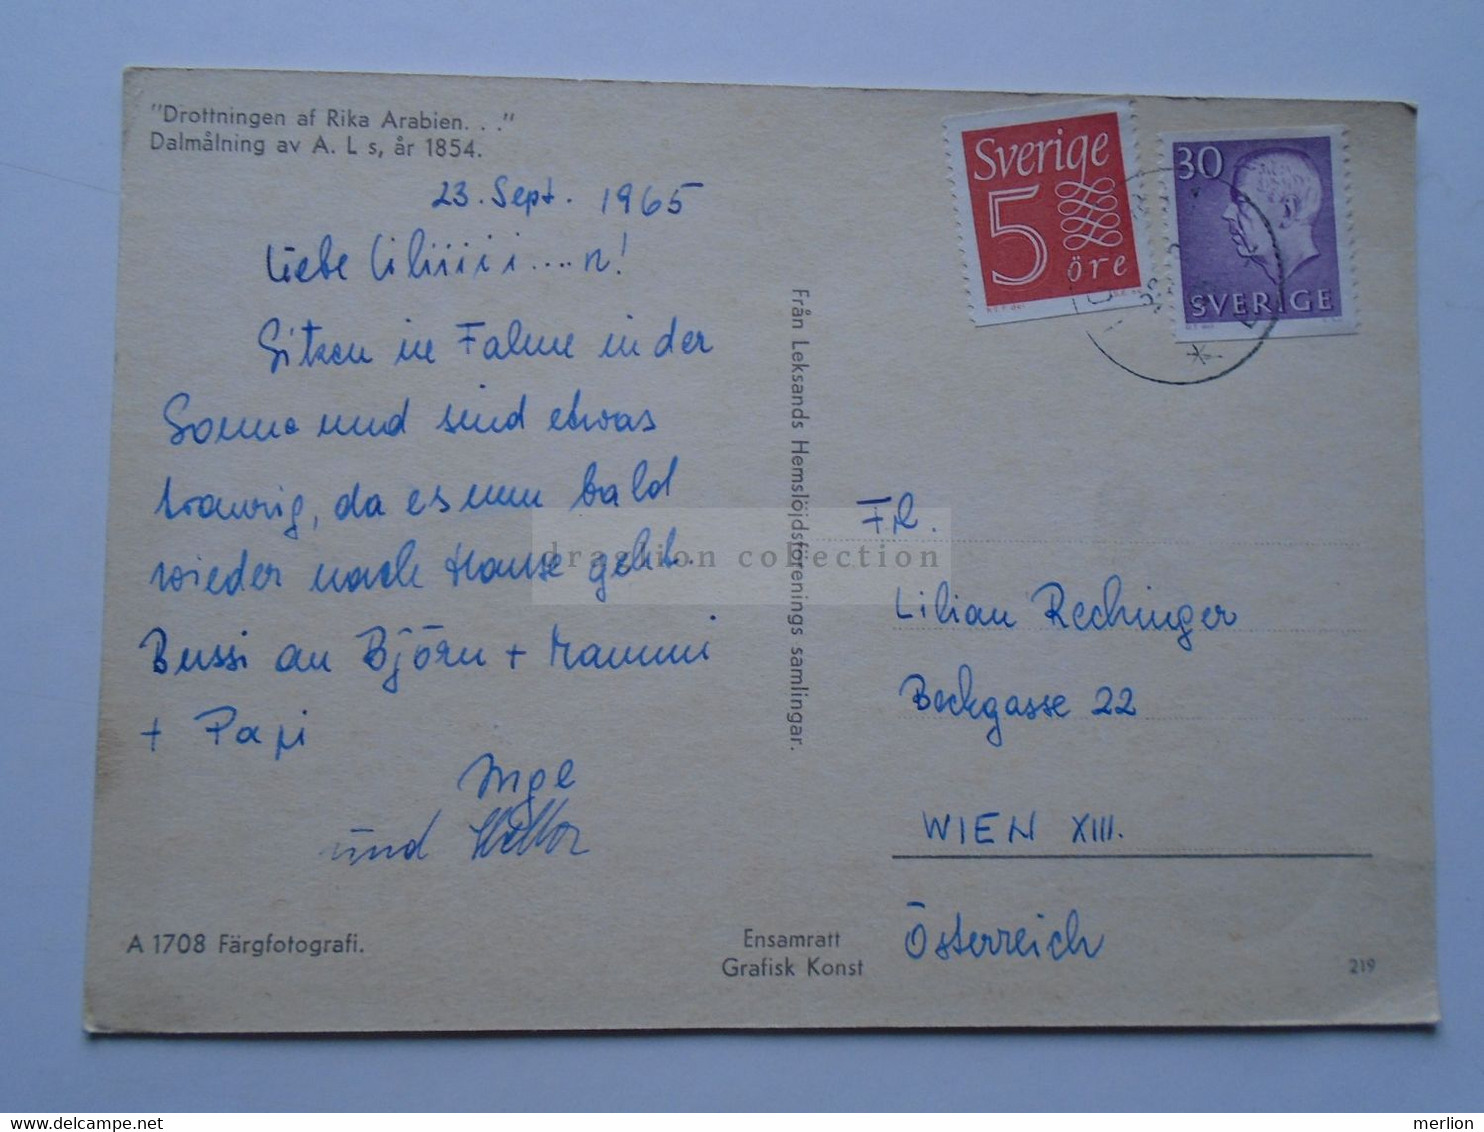 "Drottningen af Rika Arabien. . ."
Dalmålning av A. L s, år 1854.
23. Sept. 1965
Liebe Liliiiii....n!
Sitzen in Falun in der
Sonne und sind etwas
traurig, da es nun bald
wieder nach Hause geht.
Bussi an Björn + Mammi
+ Papi
Inge
und
A 1708 Färgfotografi.
Från Leksands Hemslöjdsförenings samlingar.
Ensamrätt
Grafisk Konst
Sverige
5
öre
30
SVERIGE
Frl.
Lilian Rechinger
Beckgasse 22
WIEN XIII.
Österreich
219
collection
merlion